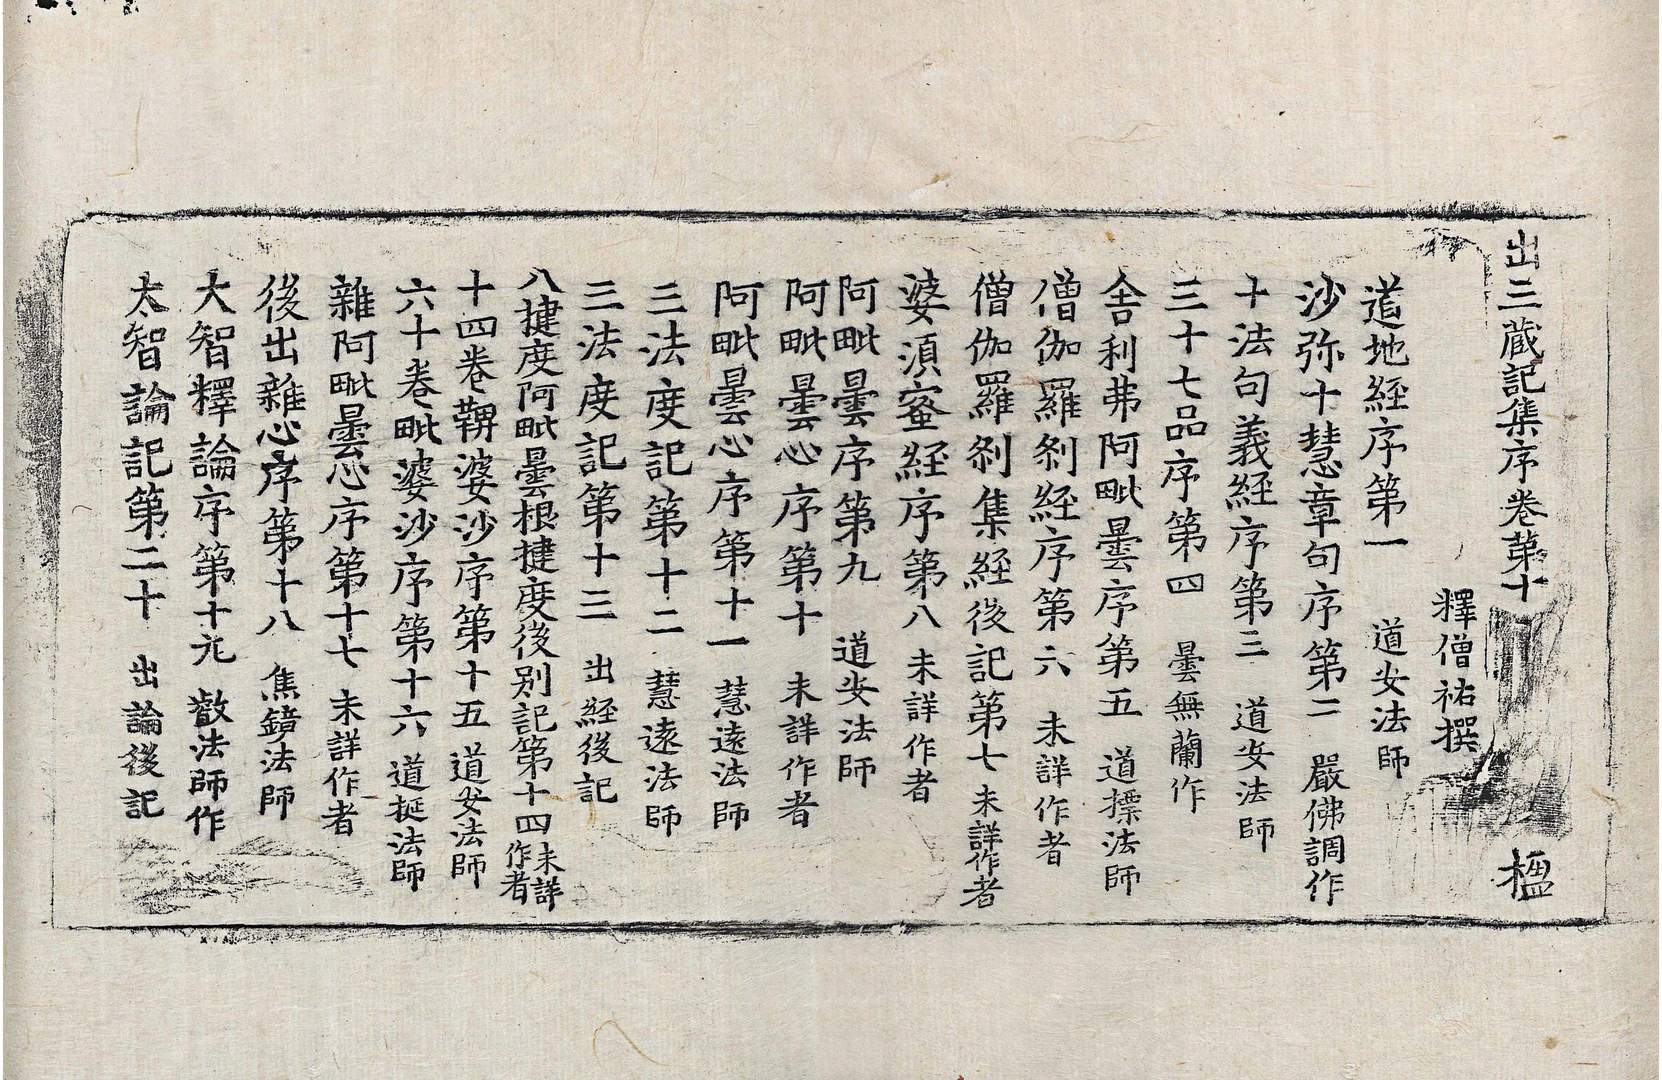 出三蔵記集序卷第十 楹
釋僧祐撰
道地経序第一 道安法師
沙弥十慧章句序第二 嚴佛調作
十法句義経序第三 道安法師
三十七品序第四 曇無蘭作
舎利弗阿毗曇序第五 道摽法師
僧伽羅刹経序第六 未詳作者
僧伽羅刹集経後記第七 未詳作者
婆湏蜜経序第八 未詳作者
阿毗曇序第九 道安法師
阿毗曇心序第十 未詳作者
阿毗曇心序第十一 慧遠法師
三法度記第十二 慧遠法師
三法度記第十三 出経後記
八揵度阿毗曇根揵度後別記第十四 未詳作者
十四卷鞞婆沙序第十五 道安法師
六十卷毗婆沙序第十六 道挻法師
雜阿毗曇心序第十七 未詳作者
後出雜心序第十八 焦鏡法師
大智釋論序第十九 叡法師作
大智論記第二十 出論後記